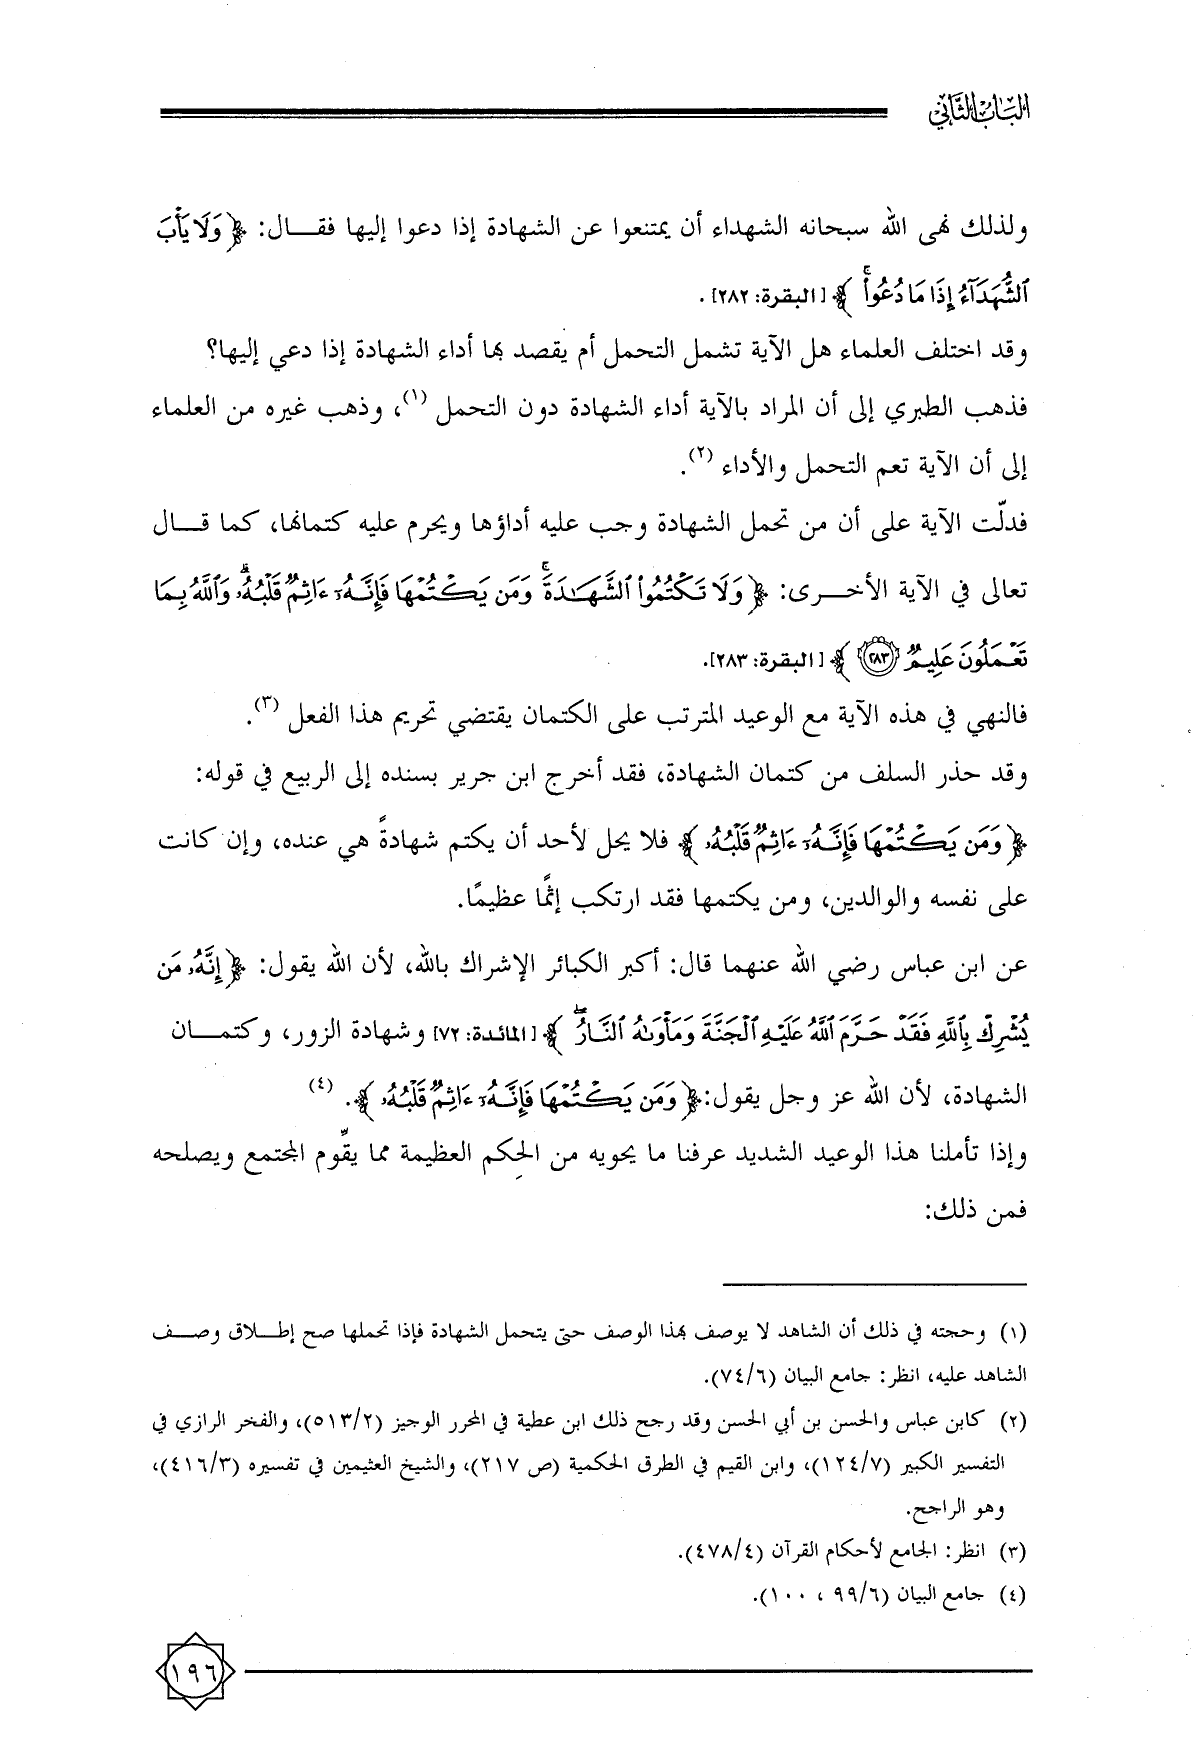 الباب الثاني
ولذلك نهى الله سبحانه الشهداء أن يمتنعوا عن الشهادة إذا دعوا إليها فقـــال: ﴿ وَلَا يَأْبَ
ٱلشُّهَدَآءُ إِذَا مَا دُعُوا۟ ۚ ﴾ [البقرة: ٢٨٢] .
وقد اختلف العلماء هل الآية تشمل التحمل أم يقصد بها أداء الشهادة إذا دعي إليها؟
فذهب الطبري إلى أن المراد بالآية أداء الشهادة دون التحمل (١)، وذهب غيره من العلماء
إلى أن الآية تعم التحمل والأداء (٢).
فدلّت الآية على أن من تحمل الشهادة وجب عليه أداؤها ويحرم عليه كتمانها، كما قـــال
تعالى في الآية الأخـــرى: ﴿ وَلَا تَكْتُمُوا۟ ٱلشَّهَـٰدَةَ ۚ وَمَن يَكْتُمْهَا فَإِنَّهُۥٓ ءَاثِمٌ قَلْبُهُۥ ۗ وَٱللَّهُ بِمَا
تَعْمَلُونَ عَلِيمٌ ٢٨٣ ﴾ [البقرة: ٢٨٣].
فالنهي في هذه الآية مع الوعيد المترتب على الكتمان يقتضي تحريم هذا الفعل (٣).
وقد حذر السلف من كتمان الشهادة، فقد أخرج ابن جرير بسنده إلى الربيع في قوله:
﴿ وَمَن يَكْتُمْهَا فَإِنَّهُۥٓ ءَاثِمٌ قَلْبُهُۥ ﴾ فلا يحل لأحد أن يكتم شهادةً هي عنده، وإن كانت
على نفسه والوالدين، ومن يكتمها فقد ارتكب إثمًا عظيمًا.
عن ابن عباس رضي الله عنهما قال: أكبر الكبائر الإشراك بالله، لأن الله يقول: ﴿ إِنَّهُۥ مَن
يُشْرِكْ بِٱللَّهِ فَقَدْ حَرَّمَ ٱللَّهُ عَلَيْهِ ٱلْجَنَّةَ وَمَأْوَىٰهُ ٱلنَّارُ ۖ ﴾ [المائدة: ٧٢] وشهادة الزور، وكتمـــان
الشهادة، لأن الله عز وجل يقول: ﴿ وَمَن يَكْتُمْهَا فَإِنَّهُۥٓ ءَاثِمٌ قَلْبُهُۥ ﴾. (٤)
وإذا تأملنا هذا الوعيد الشديد عرفنا ما يحويه من الحِكم العظيمة مما يقوِّم المجتمع ويصلحه
فمن ذلك:
(١) وحجته في ذلك أن الشاهد لا يوصف بهذا الوصف حتى يتحمل الشهادة فإذا تحملها صح إطـــلاق وصـــف
الشاهد عليه، انظر: جامع البيان (٧٤/٦).
(٢) كابن عباس والحسن بن أبي الحسن وقد رجح ذلك ابن عطية في المحرر الوجيز (٥١٣/٢)، والفخر الرازي في
التفسير الكبير (١٢٤/٧)، وابن القيم في الطرق الحكمية (ص ٢١٧)، والشيخ العثيمين في تفسيره (٤١٦/٣)،
وهو الراجح.
(٣) انظر: الجامع لأحكام القرآن (٤٧٨/٤).
(٤) جامع البيان (٩٩/٦ ، ١٠٠).
١٩٦